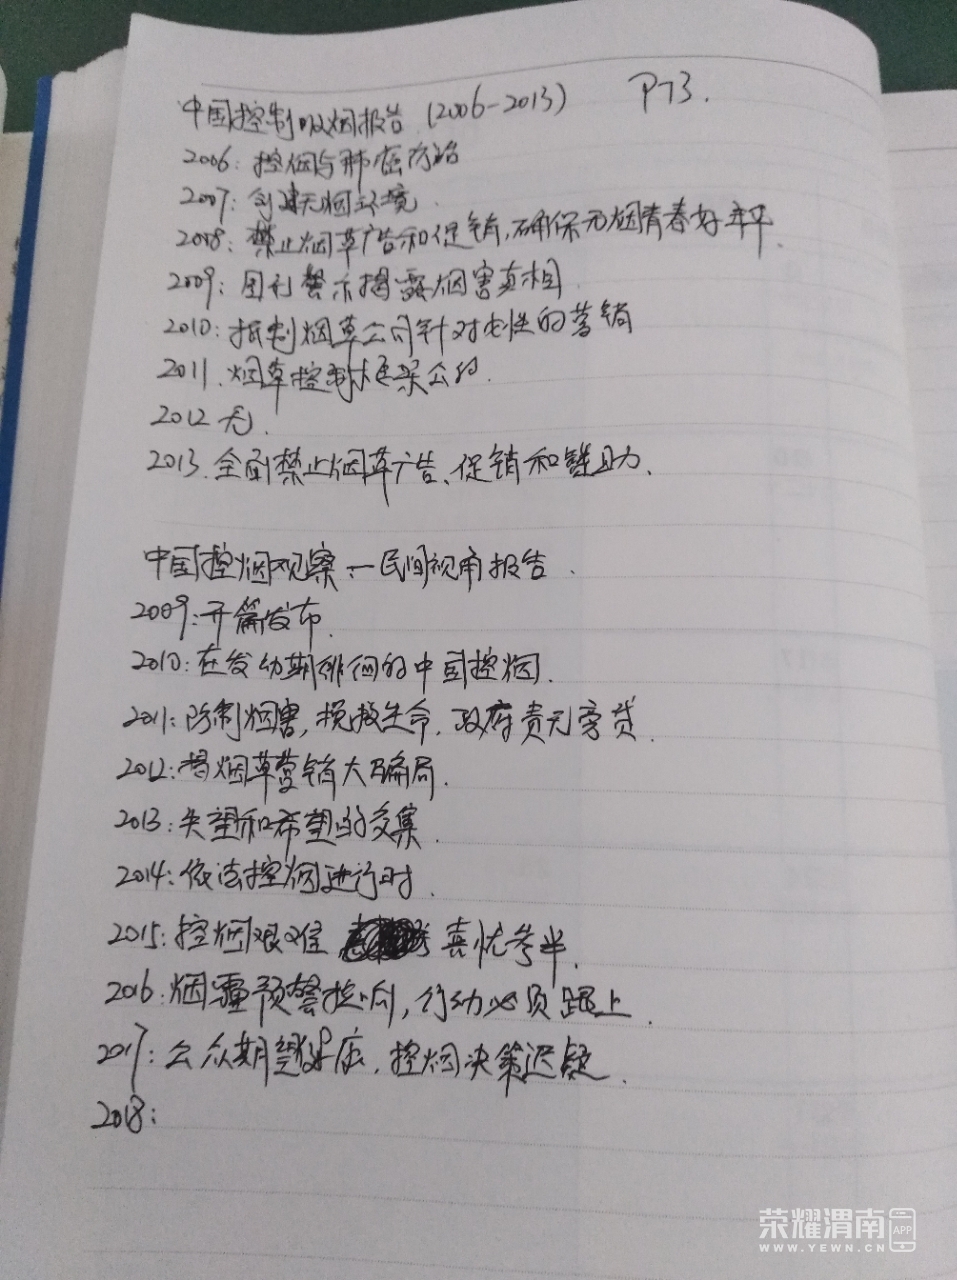 中国控制吸烟报告 (2006-2013) P73.
2006: 控烟与肺癌防治
2007: 创建无烟环境.
2008: 禁止烟草广告和促销,确保无烟青春好年华.
2009: 图形警示揭露烟害真相
2010: 抵制烟草公司针对女性的营销
2011.烟草控制框架公约.
2012 无.
2013.全面禁止烟草广告、促销和赞助.
中国控烟观察:一民间视角报告.
2009:开篇发布.
2010:在发幼期徘徊的中国控烟.
2011:防制烟害,挽救生命,政府责无旁贷.
2012:揭烟草营销大骗局.
2013:失望和希望的交集.
2014:依法控烟进行时.
2015:控烟艰难 喜忧参半.
2016:烟霾预警拉响,行动必须跟上.
2017:公众期望,控烟决策迟疑.
2018:
荣耀渭南 APP
WWW.YEWN.CN